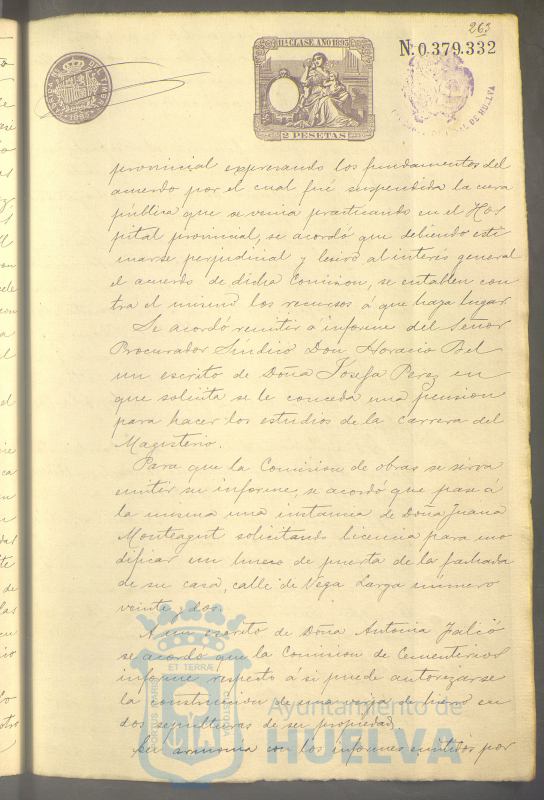 263
11ª CLASE AÑO 1895
N. 0.379.332
2 PESETAS
provincial expresando los fundamentos del
acuerdo por el cual fué suspendida la cura
pública que se venia practicando en el Hos
pital provincial, se acordó que debiendo esti
marse perjudicial y lesivo al interés general
el acuerdo de dicha Comision, se entablen con
tra el mismo los recursos á que haya lugar.
Se acordó remitir á informe del Señor
Procurador Síndico Don Horacio Bel
un escrito de Doña Josefa Perez en
que solicita se le conceda una pension
para hacer los estudios de la carrera del
Magisterio.
Para que la Comision de obras se sirva
emitir su informe, se acordó que pase á
la misma una instancia de Doña Juana
Monteagut solicitando licencia para mo
dificar un hueco de puerta de la fachada
de su casa, calle de Vega Larga número
veinte y dos.
A un escrito de Doña Antonia
se acordó que la Comision de Cementerios
informe respecto á si puede autorizarse
la construccion de una verja de hierro en
dos sepulturas de su propiedad.
En armonia con los informes emitidos por
Ayuntamiento de
HUELVA